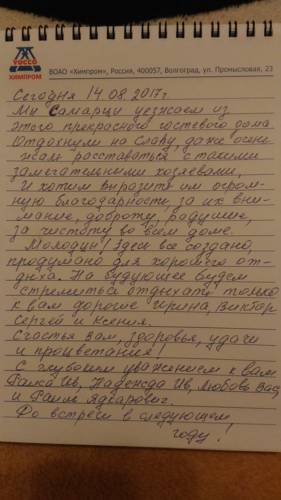 YOCCO
ХИМПРОМ
ВОАО «Химпром», Россия, 400057, Волгоград, ул. Промысловая, 23
Сегодня 14.08.2017г
Мы Самарци уезжаем из
этого прекрасного гостевого дома
Отдохнули на славу, даже очень
жаль расставаться с такими
замечательными хозяевами,
И хотим выразить им огром-
ную благодарность за их вни-
мание, доброту, радушие,
за чистоту во всем доме.
Молодцы! Здесь все создано,
продумано для хорошего от-
дыха. На будующее будем
стремиться отдыхать только
к вам дорогие Ирина, Виктор
Сергей и Ксения.
Счастья Вам, здоровья, удачи
и процветания!
С глубоким уважением к вам
Ив, Надежда Ив, Любовь Вас
и Фаиль
До встречи в следующем
году!